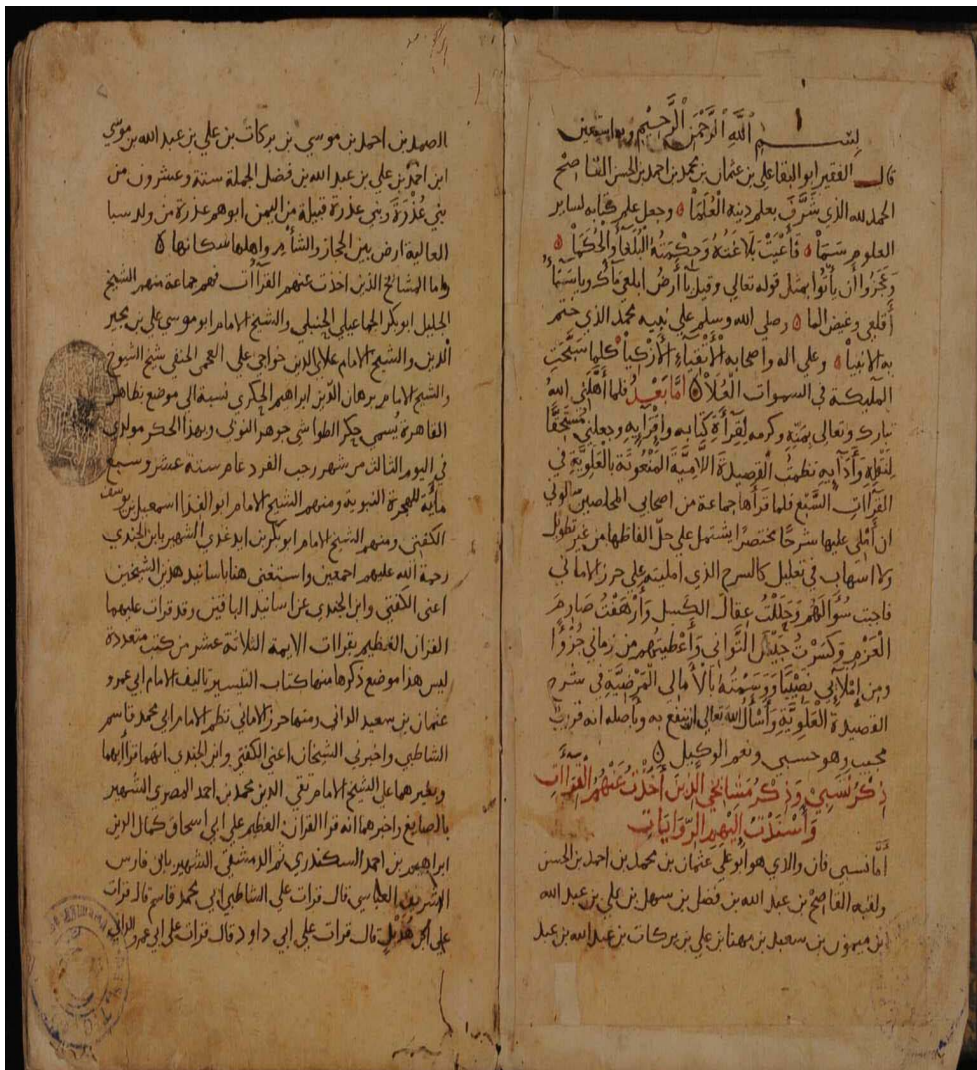 بسم الله الرحمن الرحيم وبه استعين
قال الفقير ابو البقا علي بن عثمان بن محمد بن احمد بن الحسن القاصح
الحمد لله الذي شرّف بعلم دينه العُلَمَا ه وجعل علم كتابه لساير
العلوم سَمَا ه فَأَعْيَتْ بَلَاغَتُهُ وَحِكْمَتُهُ البُلَغَا وَالْحُكَمَا ه
وَعَجَزُوا أن يأتُوا بمثل قوله تعالي وقيل يا أرض ابلعي مآك ويا سَمَآءُ
أقلعي وغيض الما ه وصلي الله وسلم علي نبيه محمد الذي ختم
به الانبيا ه وعلي اله واصحابه الْأَتْقِيَاءِ الأَزْكِيَا كلما سَبَّحَتِ
المليكة في السموات العُلَا ه أمَّا بَعْد فلما أَهَّلَني اللهُ
تبارك وتعالي بمنّه وكرمه لقرآءة كتابه وإقْرَآيه وجعلني مُسْتَحِقًّا
وأَدَآيه نظمتُ القصيدة اللامية الْمَنْعُوتَة بالعَلَويَّة في
القرآات السَّبْع فلما قرأها جماعة من اصحابي المخلصين سألوني
ان أُمْلي عليها شرحًا مختصرًا يشتمل علي حلّ الفاظها من غير تطويل
ولا اسهاب في تعليل كالشرح الذي امليته علي حرز الاماني
فاجبت سُؤَالَهُم وَحَلَلْتُ عِقالَ الكَسَل وَأَرْهَفْتُ صَارِمَ
الْعَزْمِ وَكَسَرْتُ جَيْشَ التَّوَاني وَأَعْطَيْتُهم من زماني جُزْءًا
ومن إمْلَآئي نَصِيْبًا وَوَسَمْتُهُ بالْأَمالي المَرْضِيَّة في شرح
القصيدة العَلَويَّة وَأَسْأَلُ الله تعالي ان ينفع به وبأصله انه قريب
مجيب وهو حسبي ونعم الوكيل ه
ذِكْرُ نَسَبِي وَذِكْرُ مَشَايِخِي الذِينَ أَخَذْتُ عَنْهُمُ الْقِرَآات
وَأَسْنَدْتُ إليهم الرّوَايَات
أمَّا نسبي فان والدي هو أبو علي عثمان بن محمد بن احمد بن الحسن
ولقبه القاصح بن عبد الله بن فضل بن سهل بن علي بن عبد الله
ابن ميمون بن سعيد بن مهنا بن علي بن بركات بن عبد الله بن عبد
الصمد بن احمد بن موسي بن بركات بن علي بن عبد الله بن موسي
ابن احمد بن علي بن عبد الله بن فضل الجملة ستة وعشرون من
بني عُذْرَة وبني عذرة قبيلة من اليمن ابوهم عذرة من ولد سبا
العالية ارض بين الحجاز والشأم واهلها سكانها ه
واما المشائخ الذين اخذت عنهم القرآات فهم جماعة منهم الشيخ
الجليل ابو بكر الجماعيلي الحنبلي والشيخ الامام ابو موسي علي بن
الدين والشيخ الامام علاي الدين خواجي علي العجمي الحنفي شيخ الشيوخ
والشيخ الامام برهان الدّين ابراهيم الحكري نسبة الي موضع بظاهر
القاهرة يُسمي حِكر الطواشي جوهر النوبي وبهذا الحكر مولدي
في اليوم الثالث من شهر رجب الفرد عام ستة عشر وسبع
مايَة للهجرة النبوية ومنهم الشيخ الامام ابو الفدا اسمعيل بن يوسف
الكفتي ومنهم الشيخ الامام ابو بكر بن ايدغدي الشهير بابن الجندي
رحمة الله عليهم اجمعين واستغني هنا باسانيد هذين الشيخين
اعني الكفتي وابن الجندي عن اسانيد الباقين وقد قرات عليهما
القران العظيم بقراات الايمة الثلاثة عشر من كتب متعددة
ليس هذا موضع ذكرها منها كتاب التيسير تاليف الامام ابي عمرو
عثمان بن سعيد الداني ومنها حرز الاماني نظم الامام ابي محمد قاسم
الشاطبي واخبرني الشيخان اعني الكفتي وابن الجندي انهما قرآ بهما
وبغيرهما علي الشيخ الامام تقي الدين محمد بن احمد المصري الشهير
بالصايغ واخبرهما انه قرا القران العظيم علي ابي اسحاق كمال الدين
ابراهيم بن احمد السكندري ثم الدمشقي الشهير بابن فارس
قال قرات علي الشاطبي ابي محمد قاسم قال قرات
علي ابن هُذَيْل قال قرات علي ابي داود قال قرات علي ابي عمرو الداني